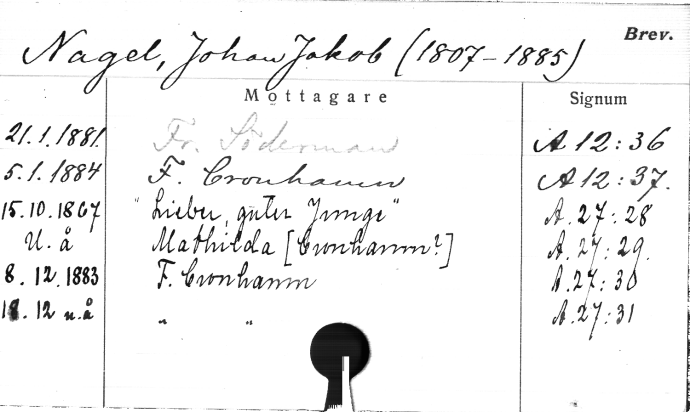 Brev.
Nagel, Johan Jakob (1807-1885)
Mottagare Signum
21.1.1881. Fr. Söderman A 12:36
5.1.1884 F. Cronhamn A 12:37.
15.10.1867 "Lieber, guter Junge" A.27:28
U. å Mathilda [Cronhamn?] A.27:29.
8.12.1883 F. Cronhamn A.27:30
18.12 u.å " " A.27:31